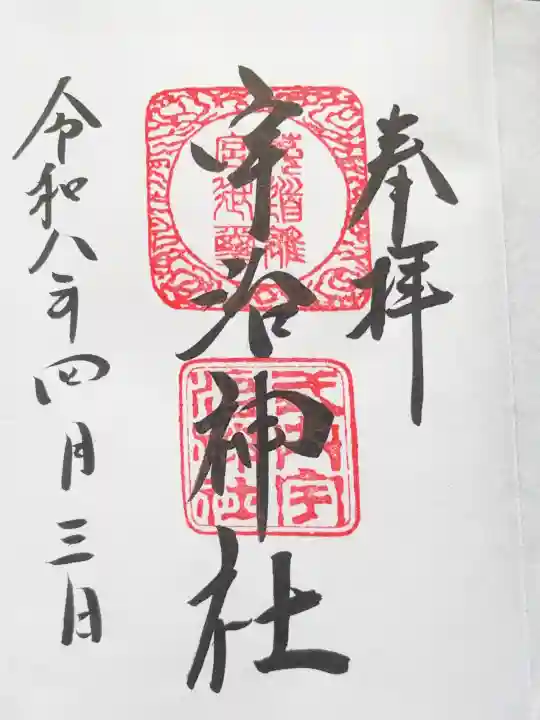 奉拝
宇治神社
令和八年四月三日